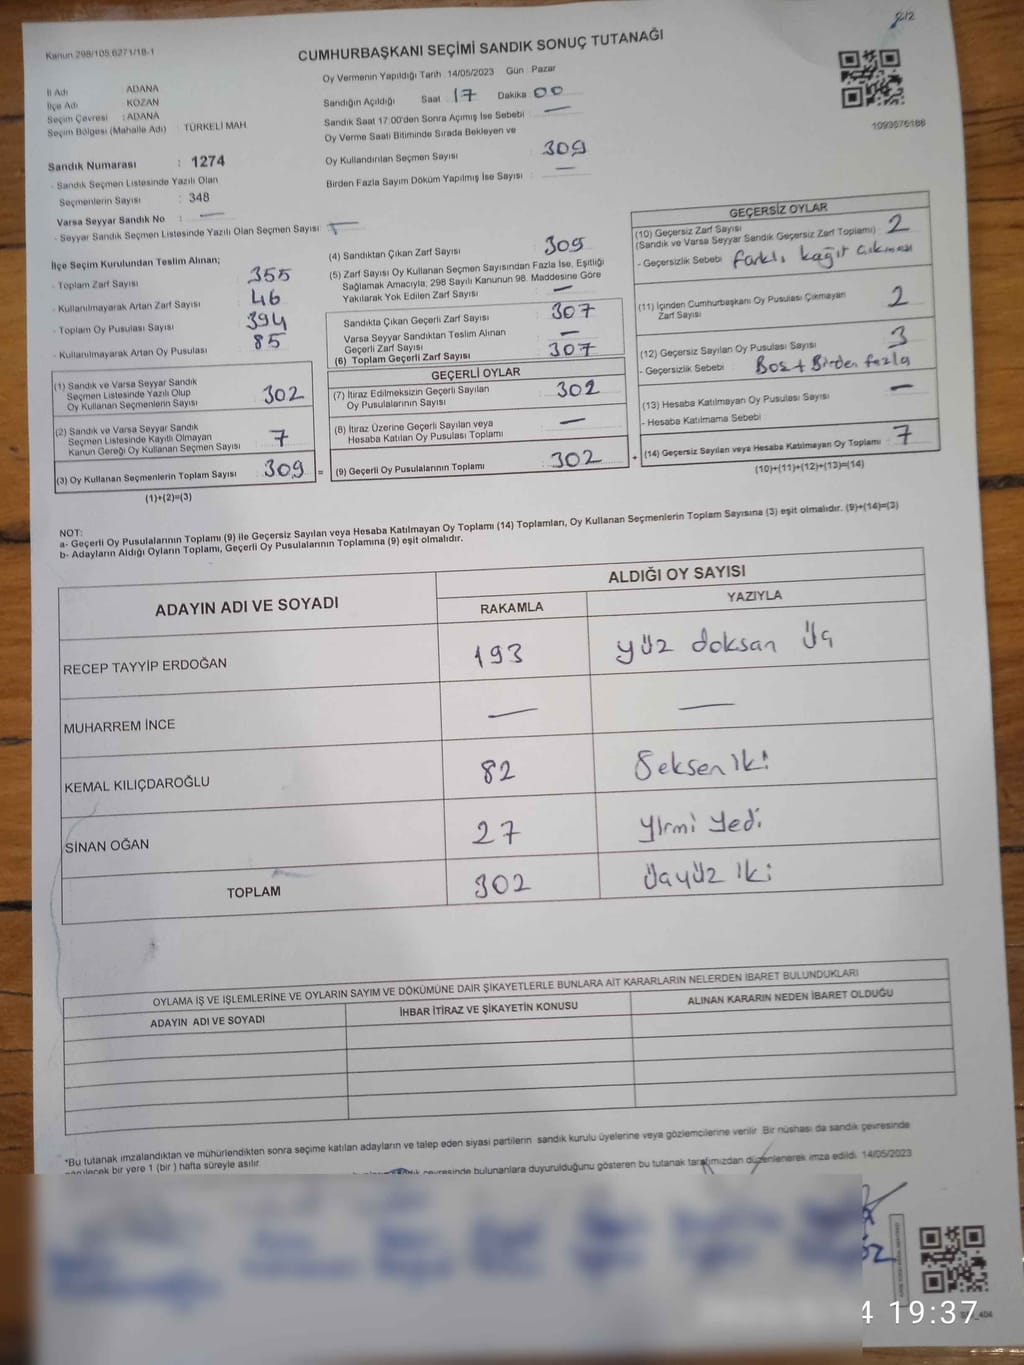 2/2
Kanun 298/105;6271/18-1
CUMHURBAŞKANI SEÇİMİ SANDIK SONUÇ TUTANAĞI
Oy Vermenin Yapıldığı Tarih : 14/05/2023 Gün : Pazar
İl Adı : ADANA
İlçe Adı : KOZAN
Seçim Çevresi : ADANA
Seçim Bölgesi (Mahalle Adı) : TÜRKELİ MAH
Sandığın Açıldığı Saat 17 Dakika 00
Sandık Saat 17:00'den Sonra Açımış İse Sebebi : —
Oy Verme Saati Bitiminde Sırada Bekleyen ve
Oy Kullandırılan Seçmen Sayısı : 309
Birden Fazla Sayım Döküm Yapılmış İse Sayısı : —
1093576186
Sandık Numarası : 1274
- Sandık Seçmen Listesinde Yazılı Olan
Seçmenlerin Sayısı : 348
Varsa Seyyar Sandık No : —
- Seyyar Sandık Seçmen Listesinde Yazılı Olan Seçmen Sayısı: —
İlçe Seçim Kurulundan Teslim Alınan;
- Toplam Zarf Sayısı : 355
- Kullanılmayarak Artan Zarf Sayısı : 46
- Toplam Oy Pusulası Sayısı : 394
- Kullanılmayarak Artan Oy Pusulası : 85
(1) Sandık ve Varsa Seyyar Sandık
Seçmen Listesinde Yazılı Olup
Oy Kullanan Seçmenlerin Sayısı : 302
(2) Sandık ve Varsa Seyyar Sandık
Seçmen Listesinde Kayıtlı Olmayan
Kanun Gereği Oy Kullanan Seçmen Sayısı : 7
(3) Oy Kullanan Seçmenlerin Toplam Sayısı : 309 =
(1)+(2)=(3)
(4) Sandıktan Çıkan Zarf Sayısı : 309
(5) Zarf Sayısı Oy Kullanan Seçmen Sayısından Fazla İse, Eşitliği
Sağlamak Amacıyla, 298 Sayılı Kanunun 98. Maddesine Göre
Yakılarak Yok Edilen Zarf Sayısı : —
Sandıkta Çıkan Geçerli Zarf Sayısı : 307
Varsa Seyyar Sandıktan Teslim Alınan
Geçerli Zarf Sayısı : —
(6) Toplam Geçerli Zarf Sayısı : 307
GEÇERLİ OYLAR
(7) İtiraz Edilmeksizin Geçerli Sayılan
Oy Pusulalarının Sayısı : 302
(8) İtiraz Üzerine Geçerli Sayılan veya
Hesaba Katılan Oy Pusulası Toplamı : —
(9) Geçerli Oy Pusulalarının Toplamı : 302 +
GEÇERSİZ OYLAR
(10) Geçersiz Zarf Sayısı
(Sandık ve Varsa Seyyar Sandık Geçersiz Zarf Toplamı) : 2
- Geçersizlik Sebebi : farklı kağıt çıkması
(11) İçinden Cumhurbaşkanı Oy Pusulası Çıkmayan
Zarf Sayısı : 2
(12) Geçersiz Sayılan Oy Pusulası Sayısı : 3
- Geçersizlik Sebebi : Boş + Birden fazla
(13) Hesaba Katılmayan Oy Pusulası Sayısı : —
- Hesaba Katılmama Sebebi :
(14) Geçersiz Sayılan veya Hesaba Katılmayan Oy Toplamı : 7
(10)+(11)+(12)+(13)=(14)
NOT:
a- Geçerli Oy Pusulalarının Toplamı (9) ile Geçersiz Sayılan veya Hesaba Katılmayan Oy Toplamı (14) Toplamları, Oy Kullanan Seçmenlerin Toplam Sayısına (3) eşit olmalıdır. (9)+(14)=(3)
b- Adayların Aldığı Oyların Toplamı, Geçerli Oy Pusulalarının Toplamına (9) eşit olmalıdır.
ADAYIN ADI VE SOYADI
ALDIĞI OY SAYISI
RAKAMLA YAZIYLA
RECEP TAYYİP ERDOĞAN 193 yüz doksan üç
MUHARREM İNCE — —
KEMAL KILIÇDAROĞLU 82 Seksen iki
SİNAN OĞAN 27 Yirmi Yedi
TOPLAM 302 üçyüz iki
OYLAMA İŞ VE İŞLEMLERİNE VE OYLARIN SAYIM VE DÖKÜMÜNE DAİR ŞİKAYETLERLE BUNLARA AİT KARARLARIN NELERDEN İBARET BULUNDUKLARI
ADAYIN ADI VE SOYADI İHBAR İTİRAZ VE ŞİKAYETİN KONUSU ALINAN KARARIN NEDEN İBARET OLDUĞU
*Bu tutanak imzalandıktan ve mühürlendikten sonra seçime katılan adayların ve talep eden siyasi partilerin sandık kurulu üyelerine veya gözlemcilerine verilir. Bir nüshası da sandık çevresinde
görülecek bir yere 1 (bir ) hafta süreyle asılır.
çevresinde bulunanlara duyurulduğunu gösteren bu tutanak tarafımızdan düzenlenerek imza edildi. 14/05/2023
4 19:37